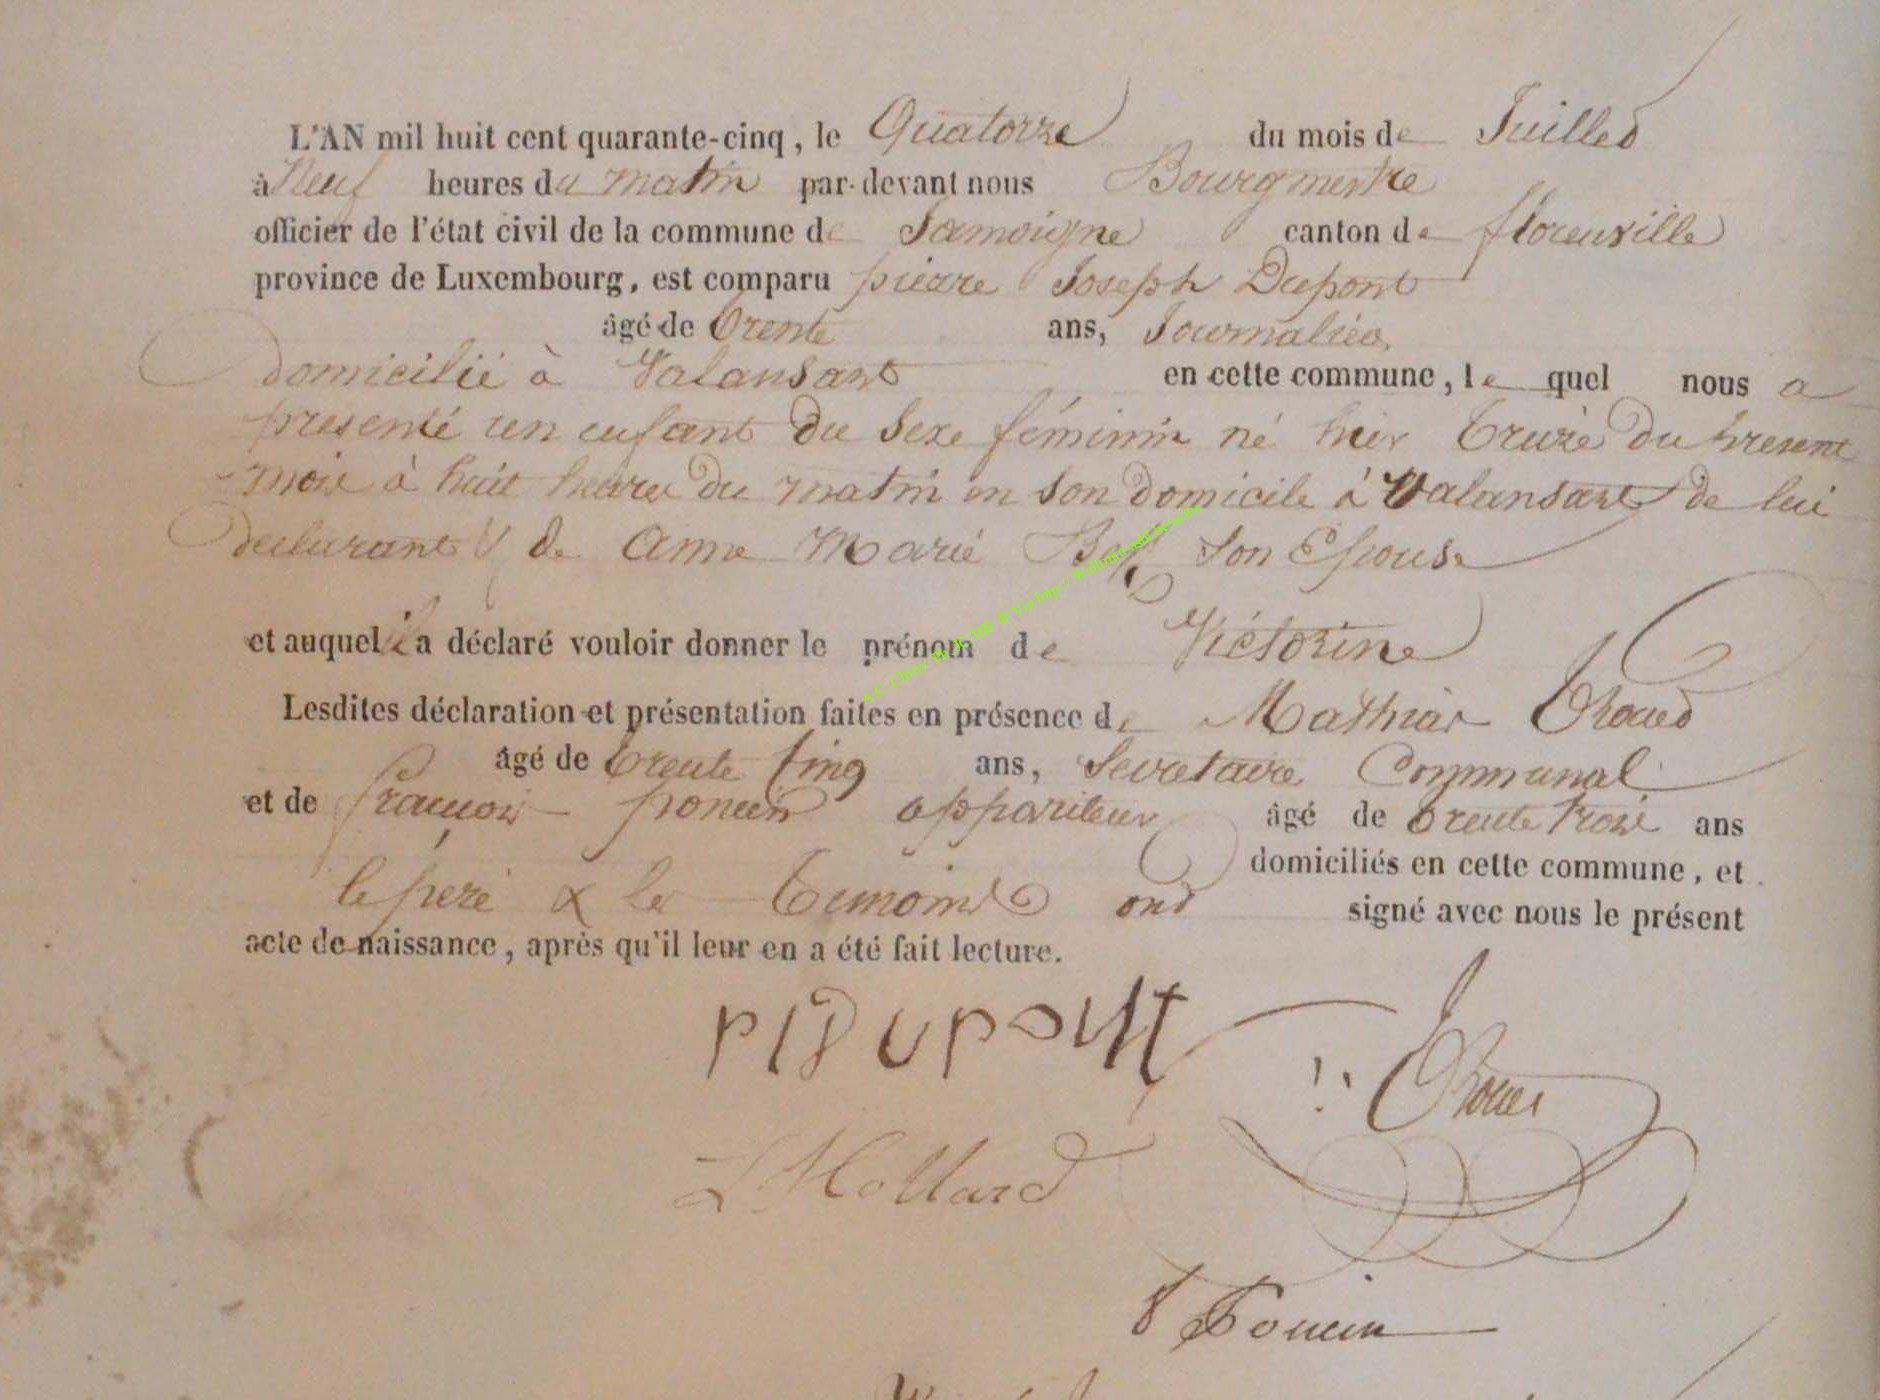 L'AN mil huit cent quarante-cinq, le Quatorze du mois de Juillet
à Neuf heures du matin par-devant nous Bourgmestre
officier de l'état civil de la commune de Jamoigne canton de florenville
province de Luxembourg, est comparu pierre Joseph Dupont
âgé de trente ans, Journalier,
domicilié à Valansart en cette commune, le quel nous a
presenté un enfant du sexe féminin né hier treize du present
mois à huit heures du matin en son domicile à Valansart de lui
declarant & de Anne Marie son Epouse
et auquel il a déclaré vouloir donner le prénom de Victorine
Lesdites déclaration et présentation faites en présence de Mathias
âgé de trente Cinq ans, Secretaire Communal
et de françois poncin appariteur âgé de trente trois ans
domiciliés en cette commune, et
le pere & les temoins ont signé avec nous le présent
acte de naissance, après qu'il leur en a été fait lecture.
PJDUPONT
L Hollard
F Poncin